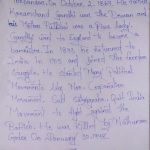 on October 2, 1869. His father
Karamchand Gandhi was the Diwan and
his Mother Putlibai was a pious lady.
Gandhi went to England to become a
In 1893, he returned to
India. In 1915 and joined the freedom
Struggle. He started Many Political
Movements like Non-Cooperation
Movement, Salt Satyagraha, Quit India
Movement to fight against the
British. He was killed by Nathuram
Godse on January 30, 1948